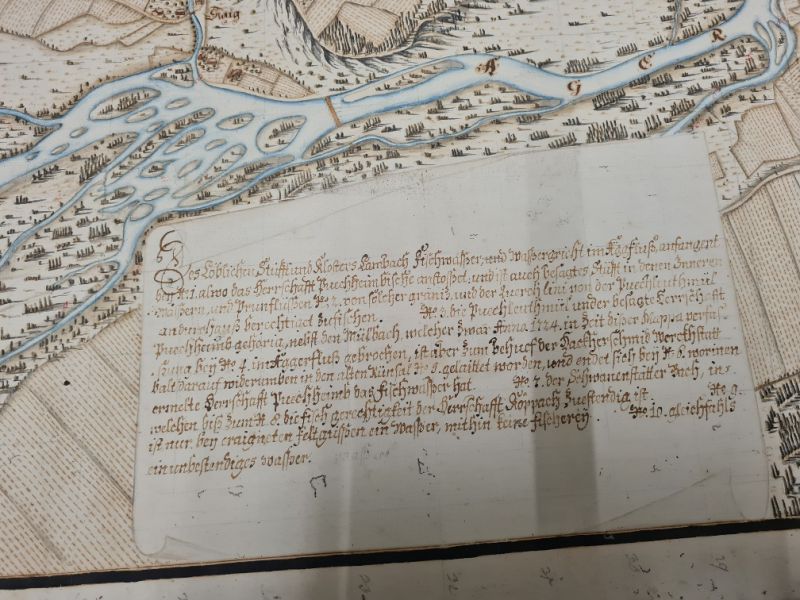 Haig
AGER
Des Löblichen Stüfft und Closters Lambach Fischwasser, und Wassergricht im Agfluß, anfangent
bey N: 1. alwo das Herrschafft Puechheimbische anstosset, und ist auch besagtes Stüfft in denen Inneren
Wässern, und Prunflüssen N: 2. von solcher graniz, und der Zwerch lini von der Puechleuthmül
berechtiget zu fischen. N: 3. die Puechleuthmül under besagte Herrschafft
Puechheimb gehörig, nebst den Mülbach, welcher zwar Anno 1724. in Zeit diser Mappa verfas-
sung bey N: 4. im Agerfluß gebrochen, ist aber zum Behueff der Hacklherschmid Werchstatt
balt darauf widerumben in den alten Rünsal N: 5. gelaittet worden, und endet sich bey N: 6. worinen
ermelte Herrschafft Puechheimb das Fischwasser hat. N: 7. der Schwanenstätter Bach, in-
welchen biß zum N: 8. die fisch gerechtigkeit der Herrschafft Köppach zuestendig ist. N: 9.
ist nur bey eraigneten feltgüssen ein Wasser, mithin keine fischerey. N: 10. gleichfahls
ein unbestendiges wasser.